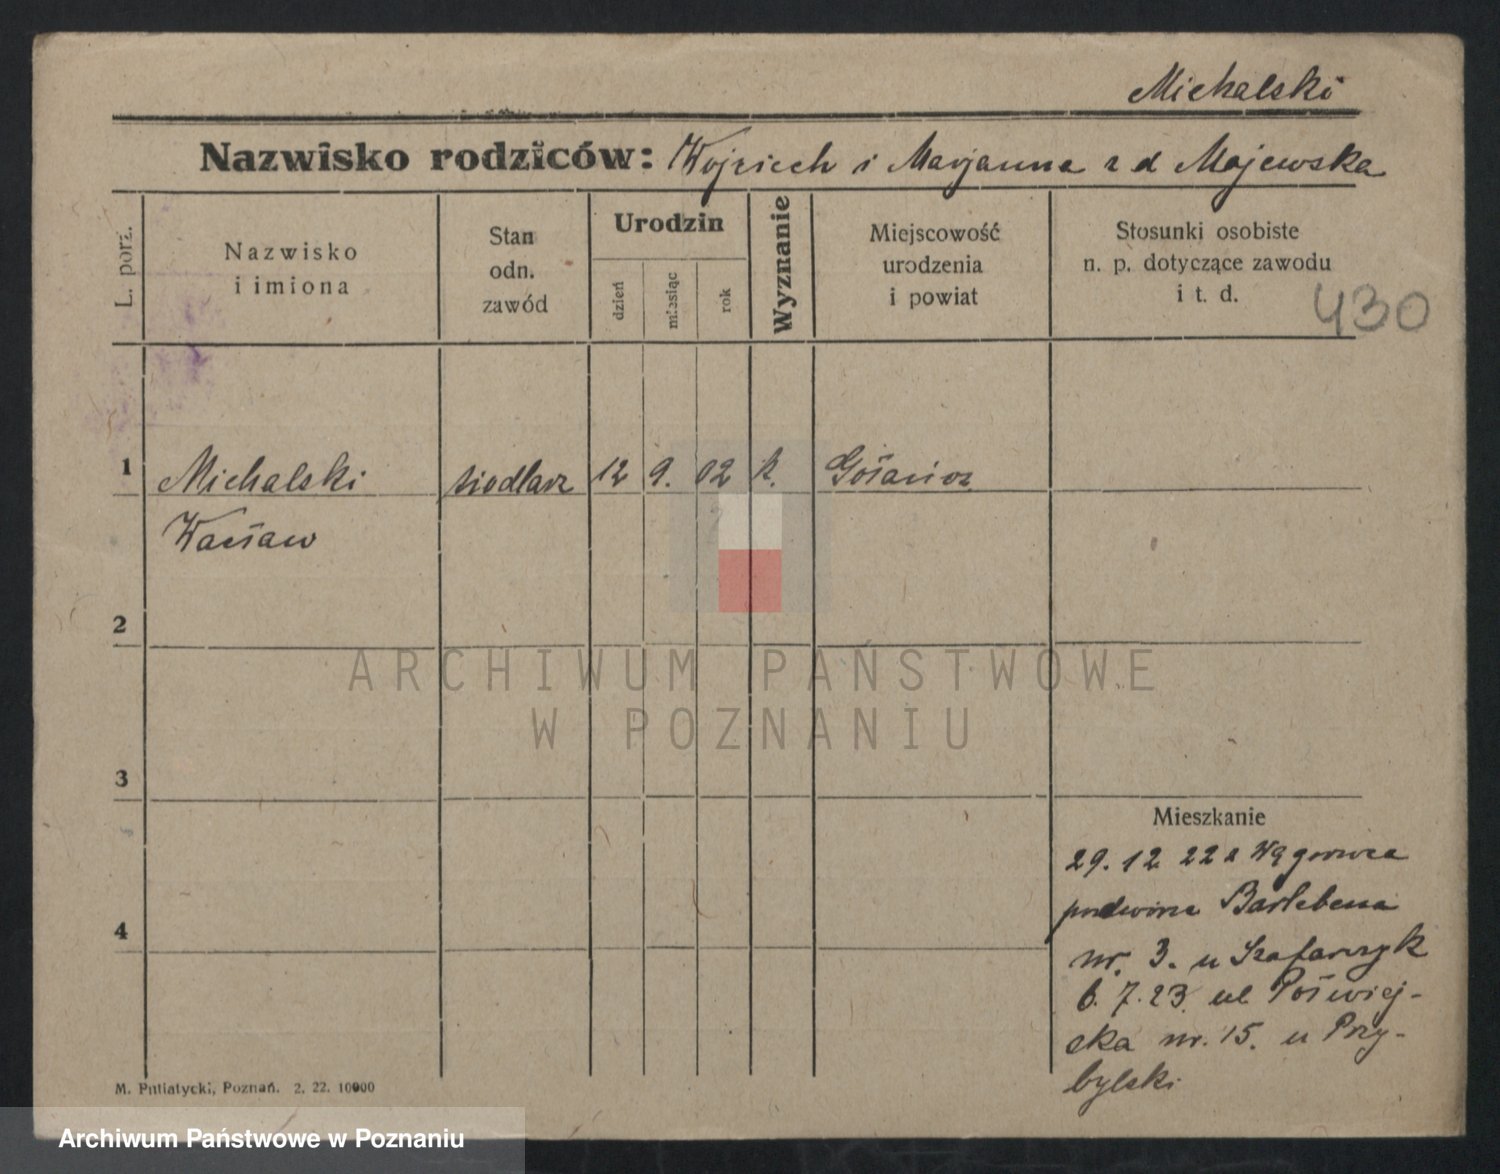 Michalski
Nazwisko rodziców: Wojciech i Marjanna z d Majewska
L. porz.
Nazwisko
i imiona
Stan
odn.
zawód
Urodzin
dzień
miesiąc
rok
Wyznanie
Miejscowość
urodzenia
i powiat
Stosunki osobiste
n. p. dotyczące zawodu
i t. d.
430
1 Michalski siodlarz 12 9. 02 k.
Wacław
2
ARCHIWUM PAŃSTWOWE
W POZNANIU
3
Mieszkanie
29. 12 22 z Wągrowca
Bartebena
4
nr. 3. u Szafarczyk
6. 7. 23. ul
cka nr. 15. u Przy-
bylski
M. Putiatycki, Poznań. 2. 22. 10000
Archiwum Państwowe w Poznaniu